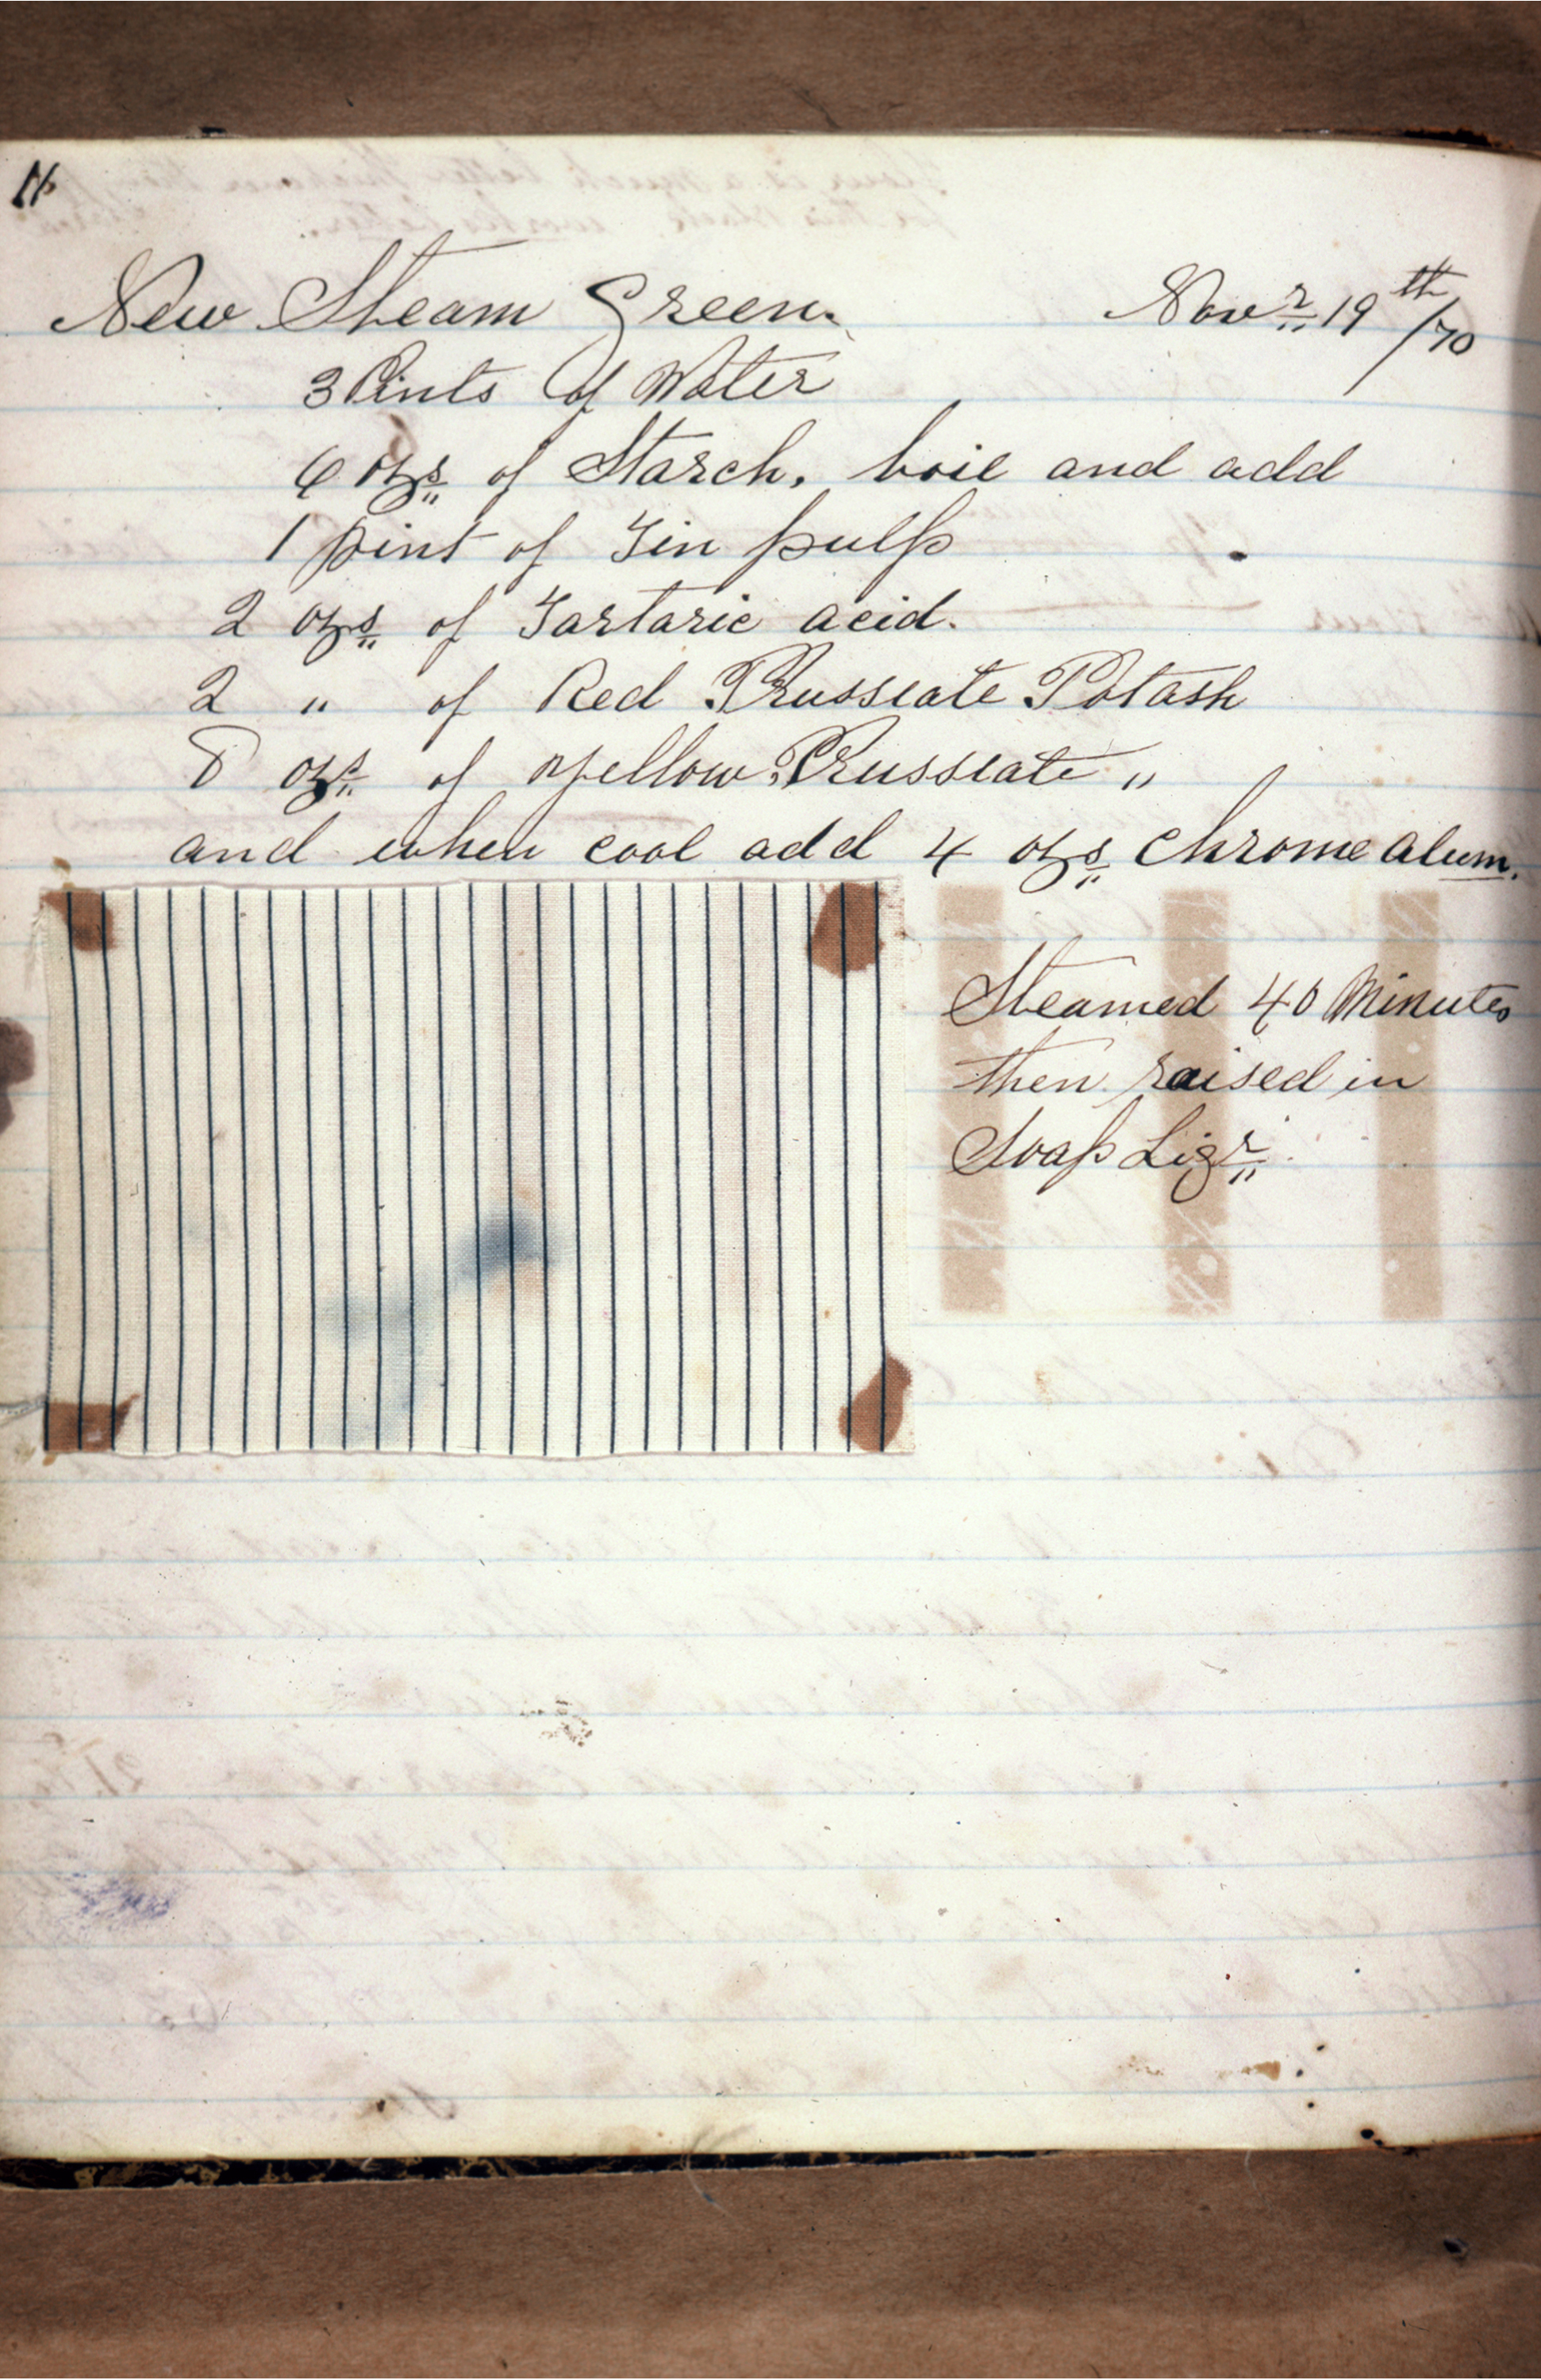 11
New Steam Green. Novr 19th/70
3 Pints of Water
6 ozs of Starch, boil and add
1 pint of Tin pulp
2 ozs of Tartaric acid.
2 " of Red Prussiate Potash
8 ozs of Yellow Prussiate "
and when cool add 4 ozs Chrome alum.
Steamed 40 Minutes
then raised in
Soap Liqr